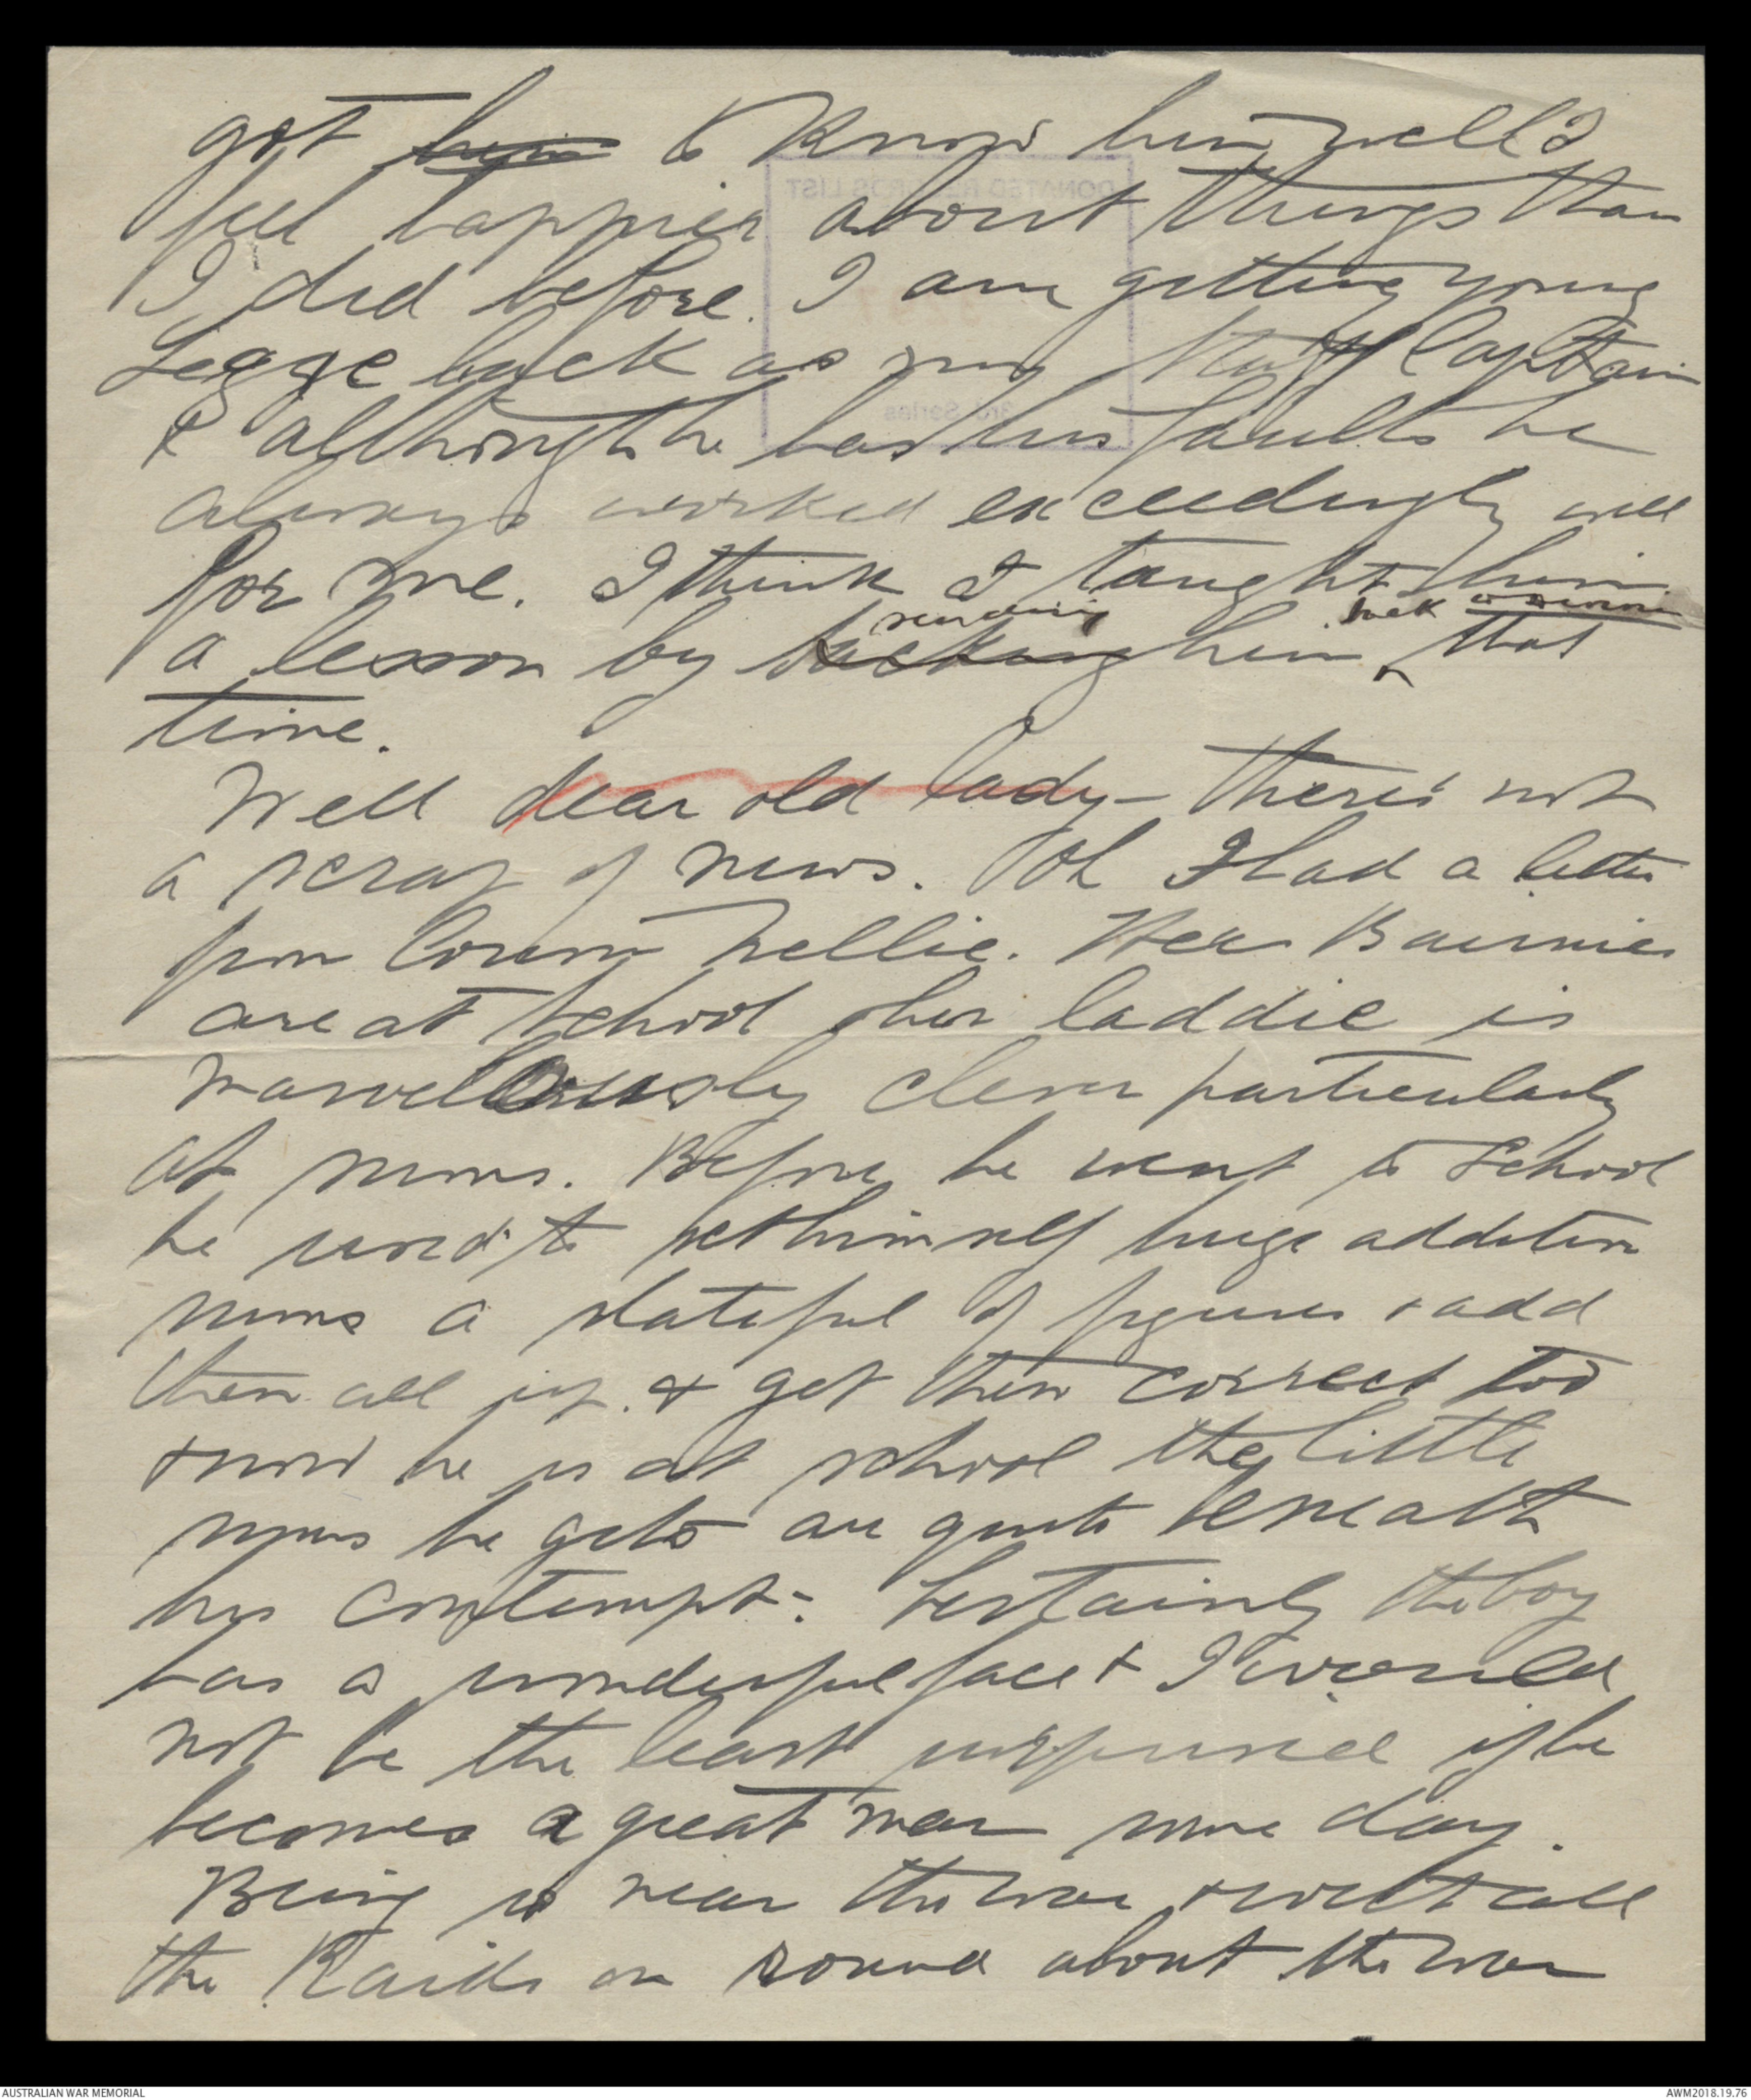 got to know him well I
feel happier about things than
I did before. I am getting young
Legge back as my Staff Captain
& although he has his faults he
always worked exceedingly well
for me. I think I taught him
a lesson by sending him back that
time.
Well dear old lady – there's not
a scrap of news. Oh I had a letter
from Cousin Nellie. Her Bairnies
are at school & her laddie is
marvellously clever particularly
at sums. Before he went to school
he used to set himself huge addition
sums a slateful of figures & add
them all up & get them correct too
& now he is at school the little
sums he gets are quite beneath
his contempt. Certainly the boy
has a wonderful face & I would
not be the least surprised if he
becomes a great man some day.
Being so near the war & with all
the Raids on round about the war
DONATED RECORDS LIST
3rd Series
AUSTRALIAN WAR MEMORIAL
AWM2018.19.76